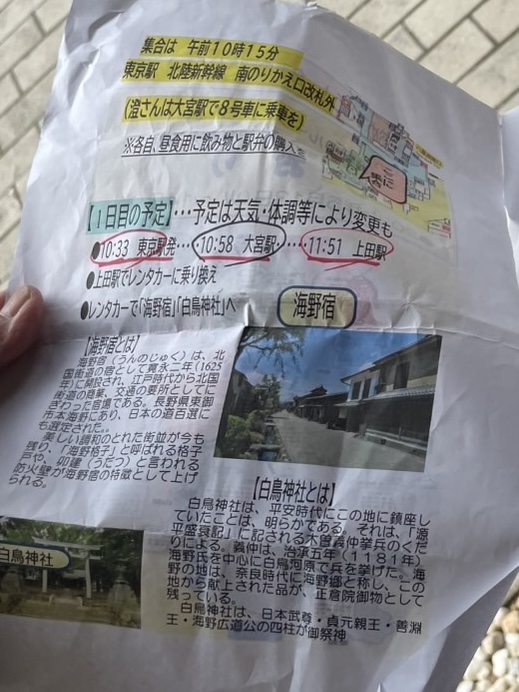 集合は 午前10時15分
東京駅 北陸新幹線 南のりかえ口改札外
(澄さんは大宮駅で8号車に乗車を)
※各自、昼食用に飲み物と駅弁の購入を
ここに集合
【1日目の予定】・・・予定は天気・体調等により変更も
●10:33 東京駅発・・・10:58 大宮駅・・・・11:51 上田駅
●上田駅でレンタカーに乗り換え
●レンタカーで「海野宿」「白鳥神社」へ
海野宿
【海野宿とは】
海野宿(うんのじゅく)は、北
国街道の宿として寛永二年(1625
年)に開設され、江戸時代から北国
街道の商業、交通の要所としてに
ぎわった宿場である。長野県東御
市本海野にあり、日本の道百選に
も選定された。
美しい調和のとれた街並が今も
残り、「海野格子」と呼ばれる格子
戸や、卯建(うだつ)と言われる
防火壁が海野宿の特徴として上げ
られる。
白鳥神社
【白鳥神社とは】
白鳥神社は、平安時代にこの地に鎮座し
ていたことは、明らかである。それは、「源
平盛衰記」に記される木曽義仲挙兵のくだ
りによる。義仲は、治承五年(1181年)
海野氏を中心に白鳥河原で兵を挙げた。海
野の地は、奈良時代に海野郷と称し、この
地から献上された品が、正倉院御物として
残っている。
白鳥神社は、日本武尊・貞元親王・善淵
王・海野広道公の四柱が御祭神